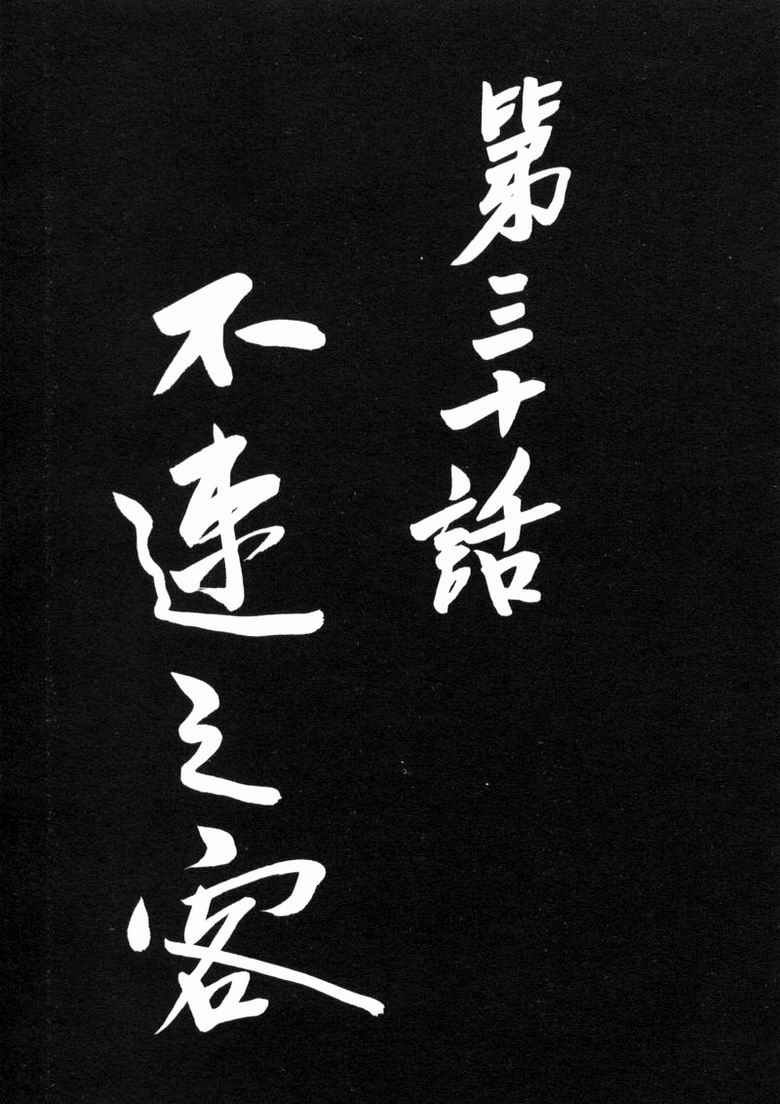 第三十話
不速之客